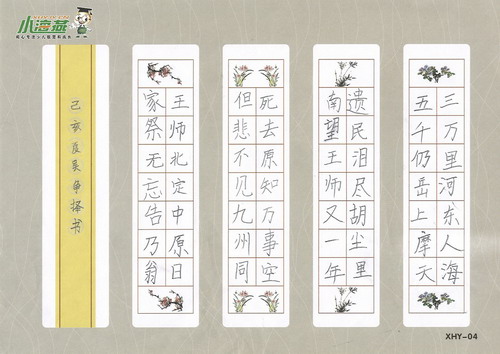 小海燕
三万里河东人海
五千仍岳上摩天
遗民泪尽胡尘里
南望王师又一年
死去原知万事空
但悲不见九州同
王师北定中原日
家祭无忘告乃翁
己亥吴争择书
XHY-04